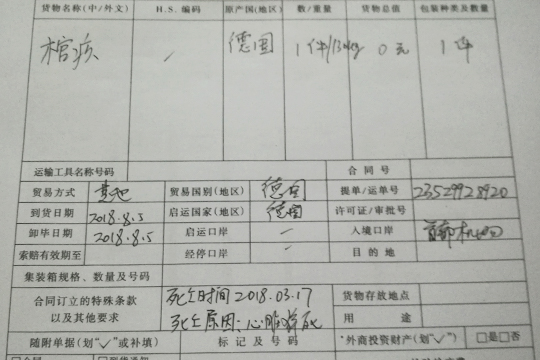 货物名称(中/外文) H.S.编码 原产国(地区) 数/重量 货物总值 包装种类及数量
棺 / 德国 1件/130kg 0元 1件
运输工具名称号码 合同号
贸易方式 其他 贸易国别(地区) 德国 提单/运单号 23529928920
到货日期 2018.8.5 启运国家(地区) 德国 许可证/审批号
卸毕日期 2018.8.5 启运口岸 / 入境口岸 首都机场
索赔有效期至 经停口岸 / 目的地
集装箱规格、数量及号码
合同订立的特殊条款 死亡时间2018.03.17 货物存放地点
以及其他要求 死亡原因:心脏猝死 用途
随附单据(划“✓”或补填) 标记及号码 *外商投资财产(划“✓”) □是□否